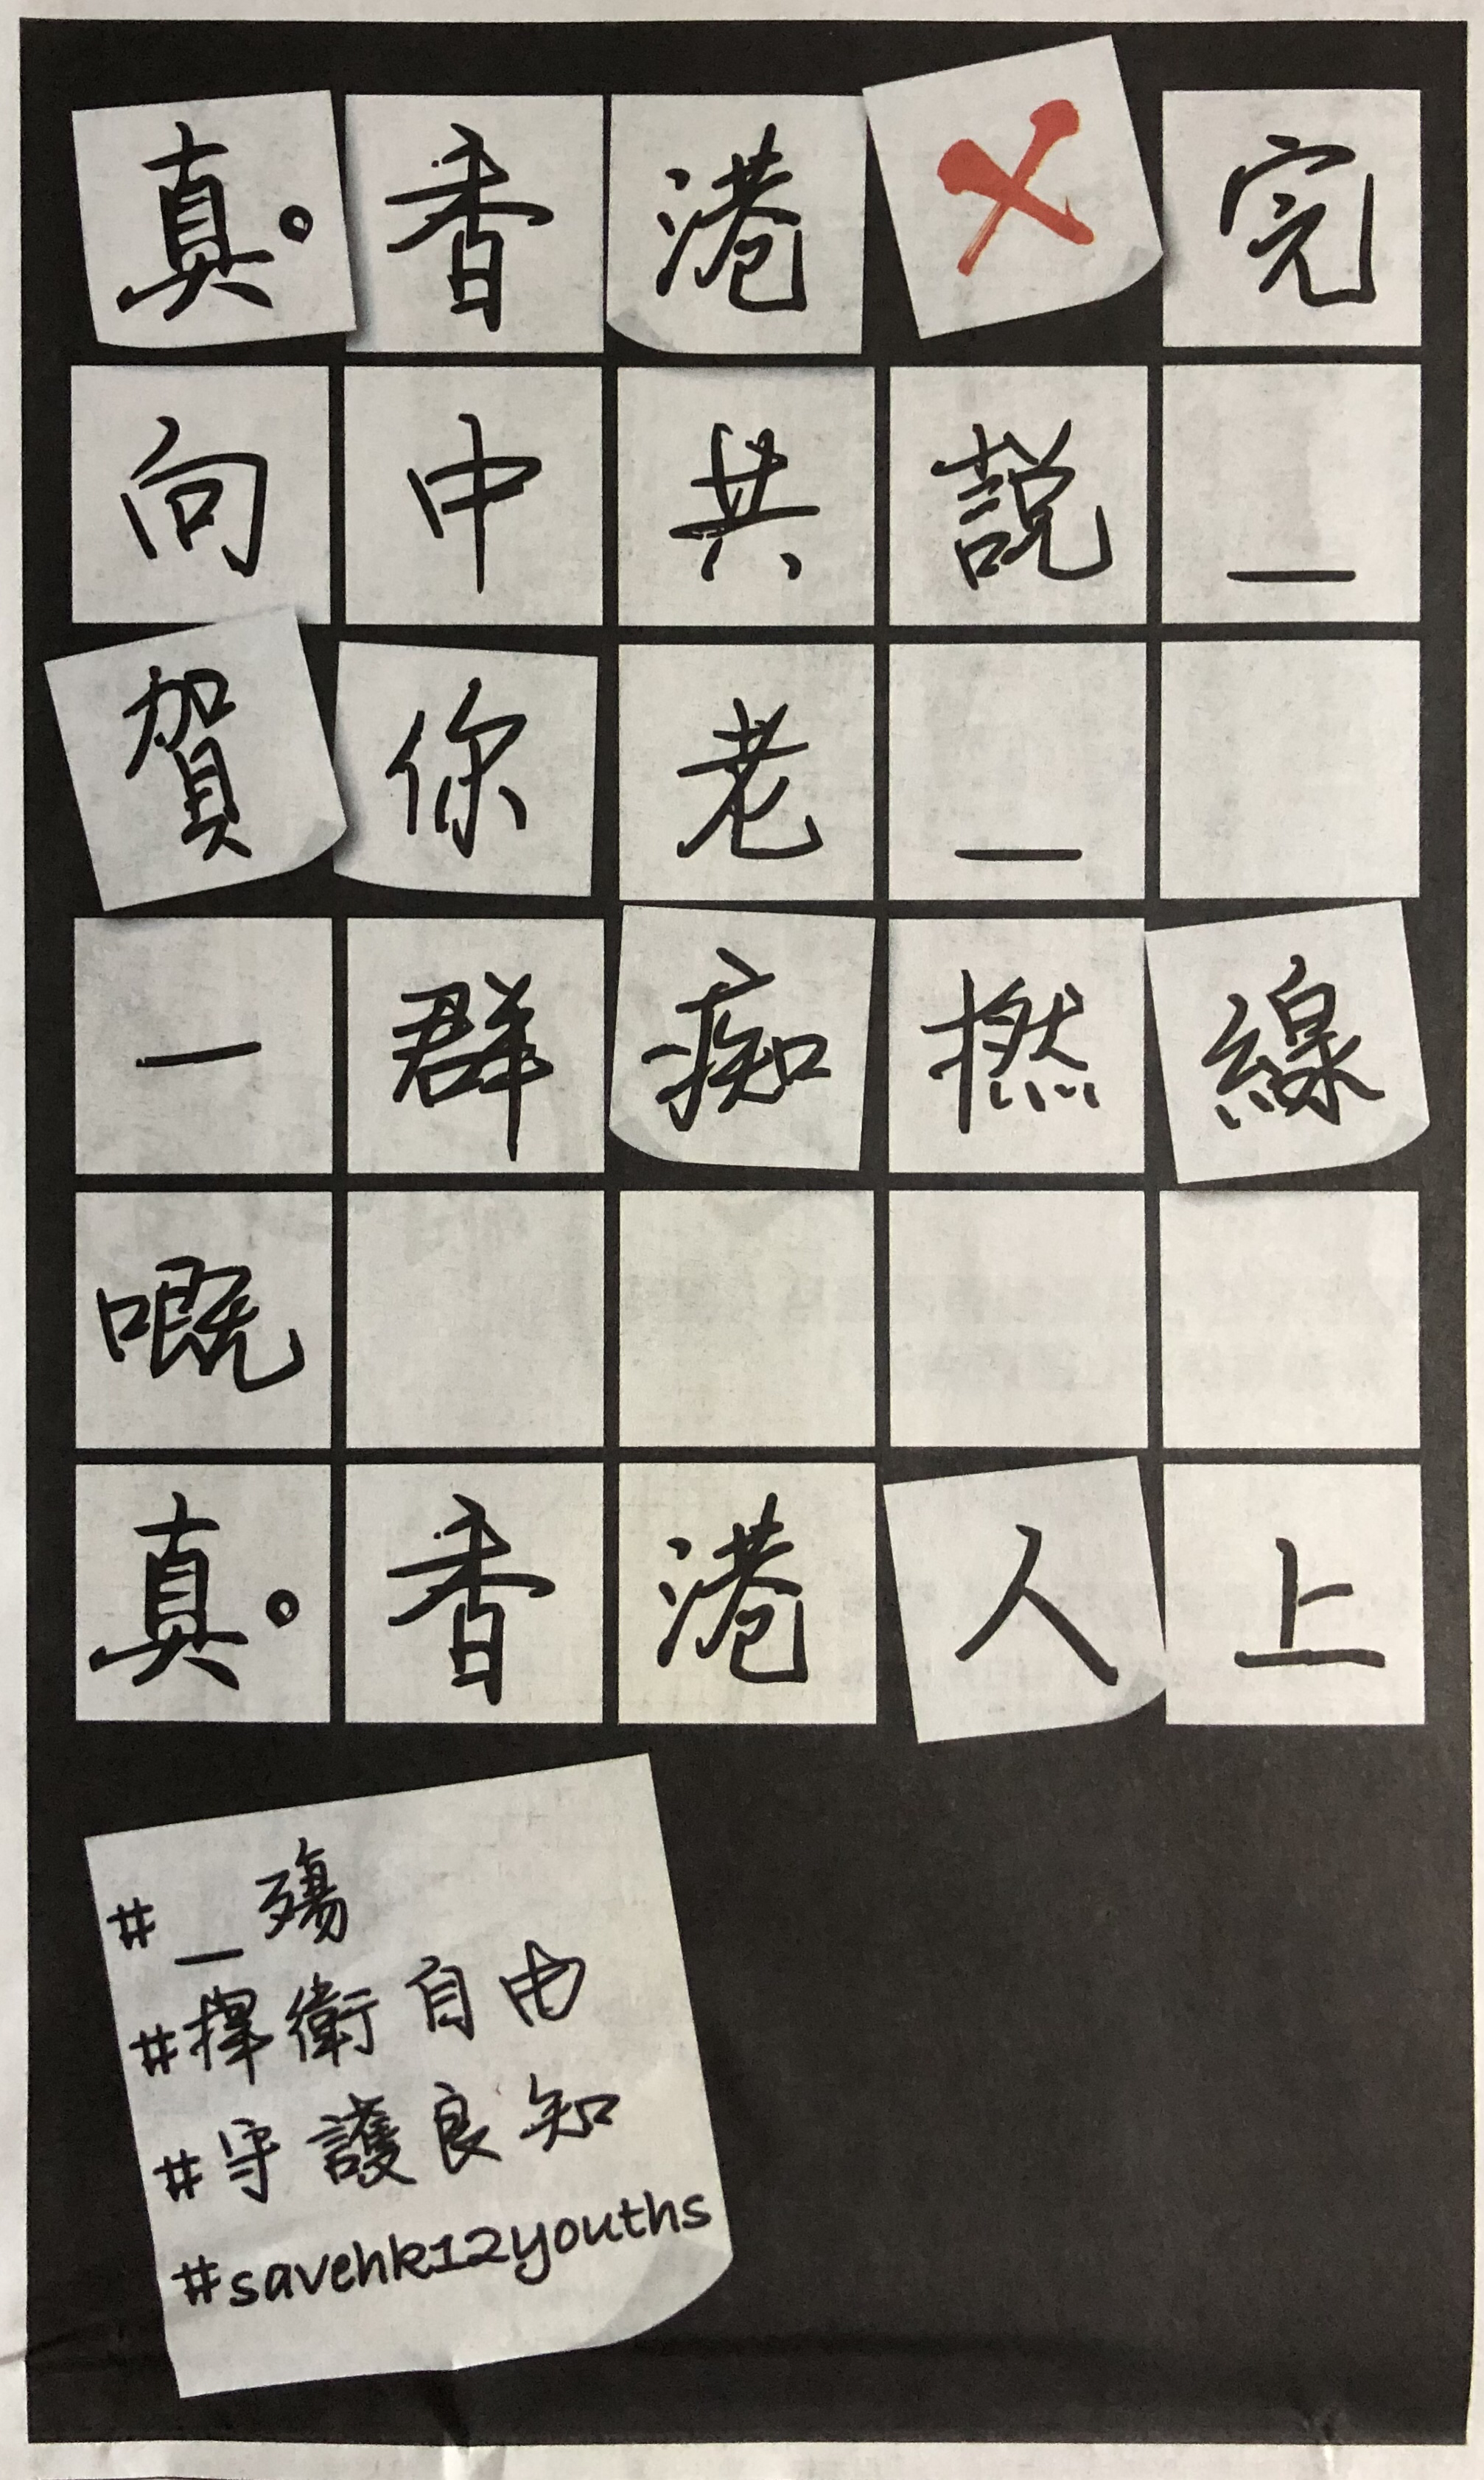 真。香港㐅完
向中共説_
賀你老_
一群痴撚線
嘅
真。香港人上
#_殤
#捍衛自由
#守護良知
#savehk12youths